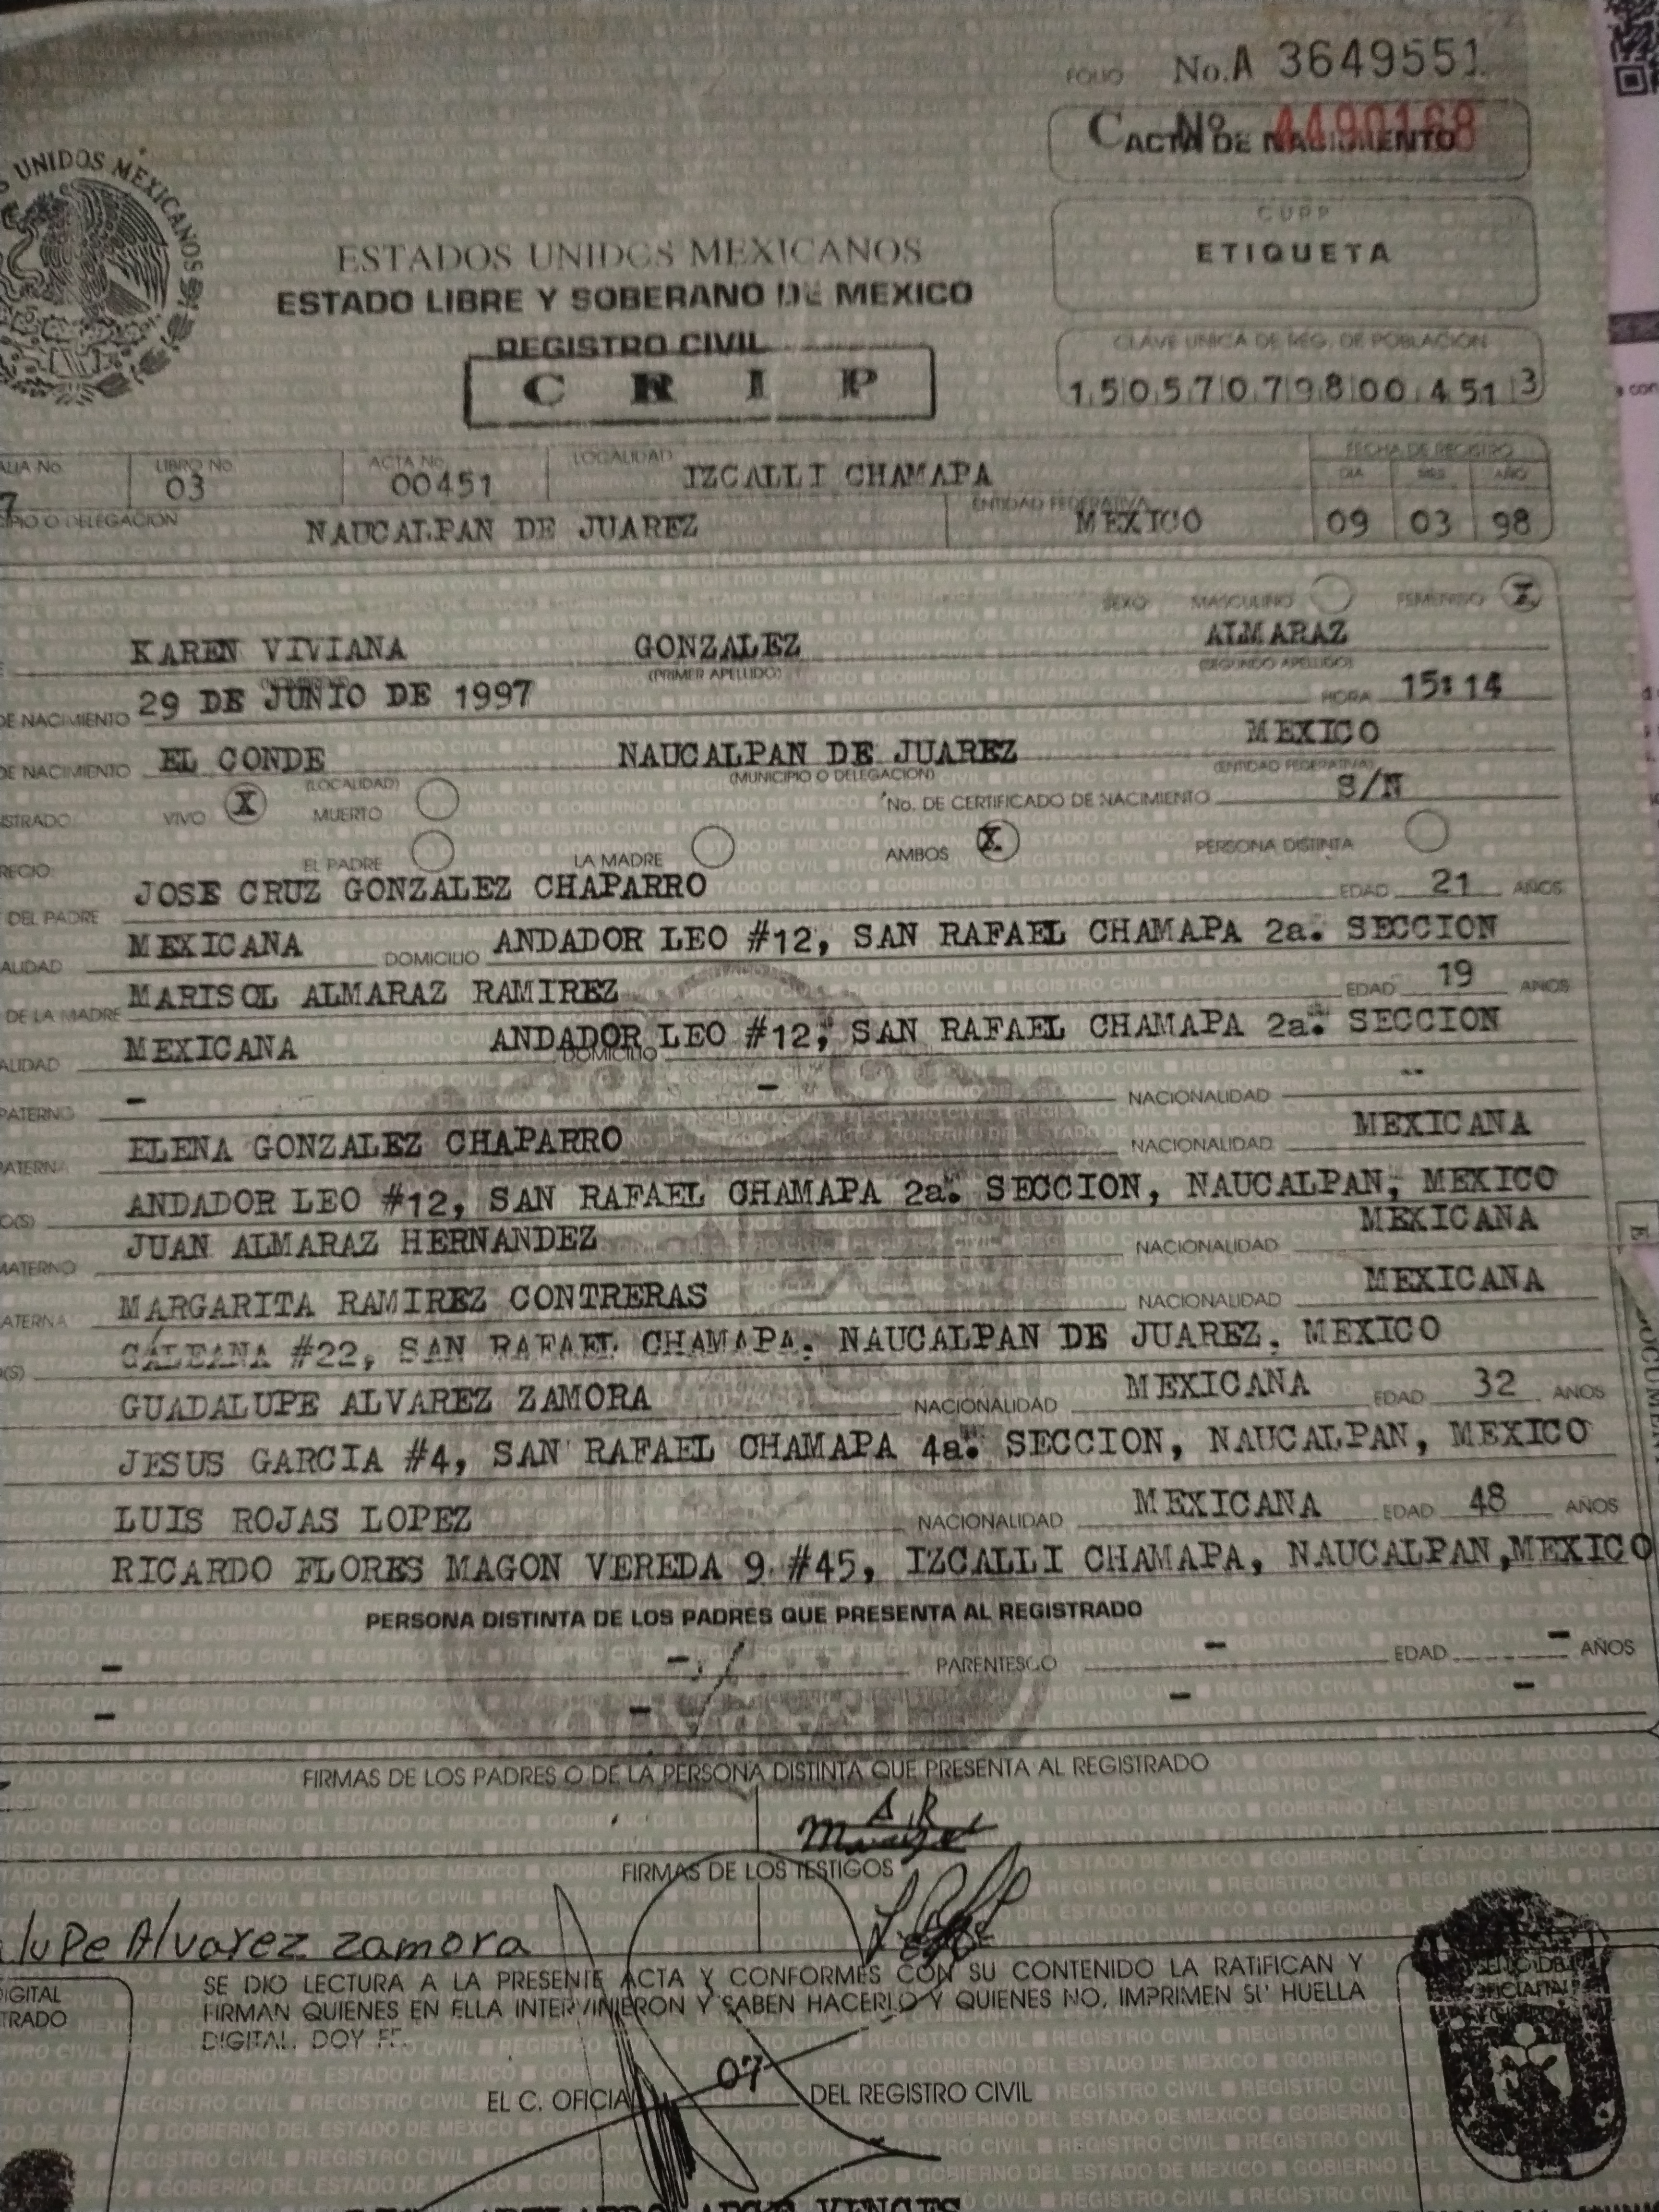 FOLIO No. A 3649551
C Nº 4490168
ACTA DE NACIMIENTO
UNIDOS MEXICANOS
CURP
ETIQUETA
ESTADOS UNIDOS MEXICANOS
ESTADO LIBRE Y SOBERANO DE MEXICO
REGISTRO CIVIL
C R I P
CLAVE UNICA DE REG. DE POBLACION
1 5 0 5 7 0 7 9 8 0 0 4 5 1 3
ALIA No. LIBRO No. ACTA No. LOCALIDAD FECHA DE REGISTRO
7 03 00451 IZCALLI CHAMAPA DIA MES AÑO
CIPIO O DELEGACION NAUCALPAN DE JUAREZ ENTIDAD FEDERATIVA MEXICO 09 03 98
SEXO MASCULINO FEMENINO X
KAREN VIVIANA GONZALEZ ALMARAZ
(NOMBRE) (PRIMER APELLIDO) (SEGUNDO APELLIDO)
DE NACIMIENTO 29 DE JUNIO DE 1997 HORA 15:14
DE NACIMIENTO EL CONDE NAUCALPAN DE JUAREZ MEXICO
(LOCALIDAD) (MUNICIPIO O DELEGACION) (ENTIDAD FEDERATIVA)
ISTRADO VIVO X MUERTO No. DE CERTIFICADO DE NACIMIENTO S/N
RECIO: EL PADRE LA MADRE AMBOS X PERSONA DISTINTA
DEL PADRE JOSE CRUZ GONZALEZ CHAPARRO EDAD 21 AÑOS
ALIDAD MEXICANA DOMICILIO ANDADOR LEO #12, SAN RAFAEL CHAMAPA 2a. SECCION
DE LA MADRE MARISOL ALMARAZ RAMIREZ EDAD 19 AÑOS
ALIDAD MEXICANA DOMICILIO ANDADOR LEO #12, SAN RAFAEL CHAMAPA 2a. SECCION
PATERNO - - NACIONALIDAD --
PATERNA ELENA GONZALEZ CHAPARRO NACIONALIDAD MEXICANA
O(S) ANDADOR LEO #12, SAN RAFAEL CHAMAPA 2a. SECCION, NAUCALPAN, MEXICO
MATERNO JUAN ALMARAZ HERNANDEZ NACIONALIDAD MEXICANA
ATERNA MARGARITA RAMIREZ CONTRERAS NACIONALIDAD MEXICANA
O(S) GALEANA #22, SAN RAFAEL CHAMAPA, NAUCALPAN DE JUAREZ, MEXICO
GUADALUPE ALVAREZ ZAMORA NACIONALIDAD MEXICANA EDAD 32 AÑOS
JESUS GARCIA #4, SAN RAFAEL CHAMAPA 4a. SECCION, NAUCALPAN, MEXICO
LUIS ROJAS LOPEZ NACIONALIDAD MEXICANA EDAD 48 AÑOS
RICARDO FLORES MAGON VEREDA 9 #45, IZCALLI CHAMAPA, NAUCALPAN, MEXICO
PERSONA DISTINTA DE LOS PADRES QUE PRESENTA AL REGISTRADO
- - PARENTESCO - EDAD - AÑOS
- - - -
FIRMAS DE LOS PADRES O DE LA PERSONA DISTINTA QUE PRESENTA AL REGISTRADO
A R
FIRMAS DE LOS TESTIGOS
lupe Alvarez zamora
IGITAL
TRADO
SE DIO LECTURA A LA PRESENTE ACTA Y CONFORMES CON SU CONTENIDO LA RATIFICAN Y
FIRMAN QUIENES EN ELLA INTERVINIERON Y SABEN HACERLO Y QUIENES NO, IMPRIMEN SU HUELLA
DIGITAL. DOY FE.
EL C. OFICIAL 07 DEL REGISTRO CIVIL